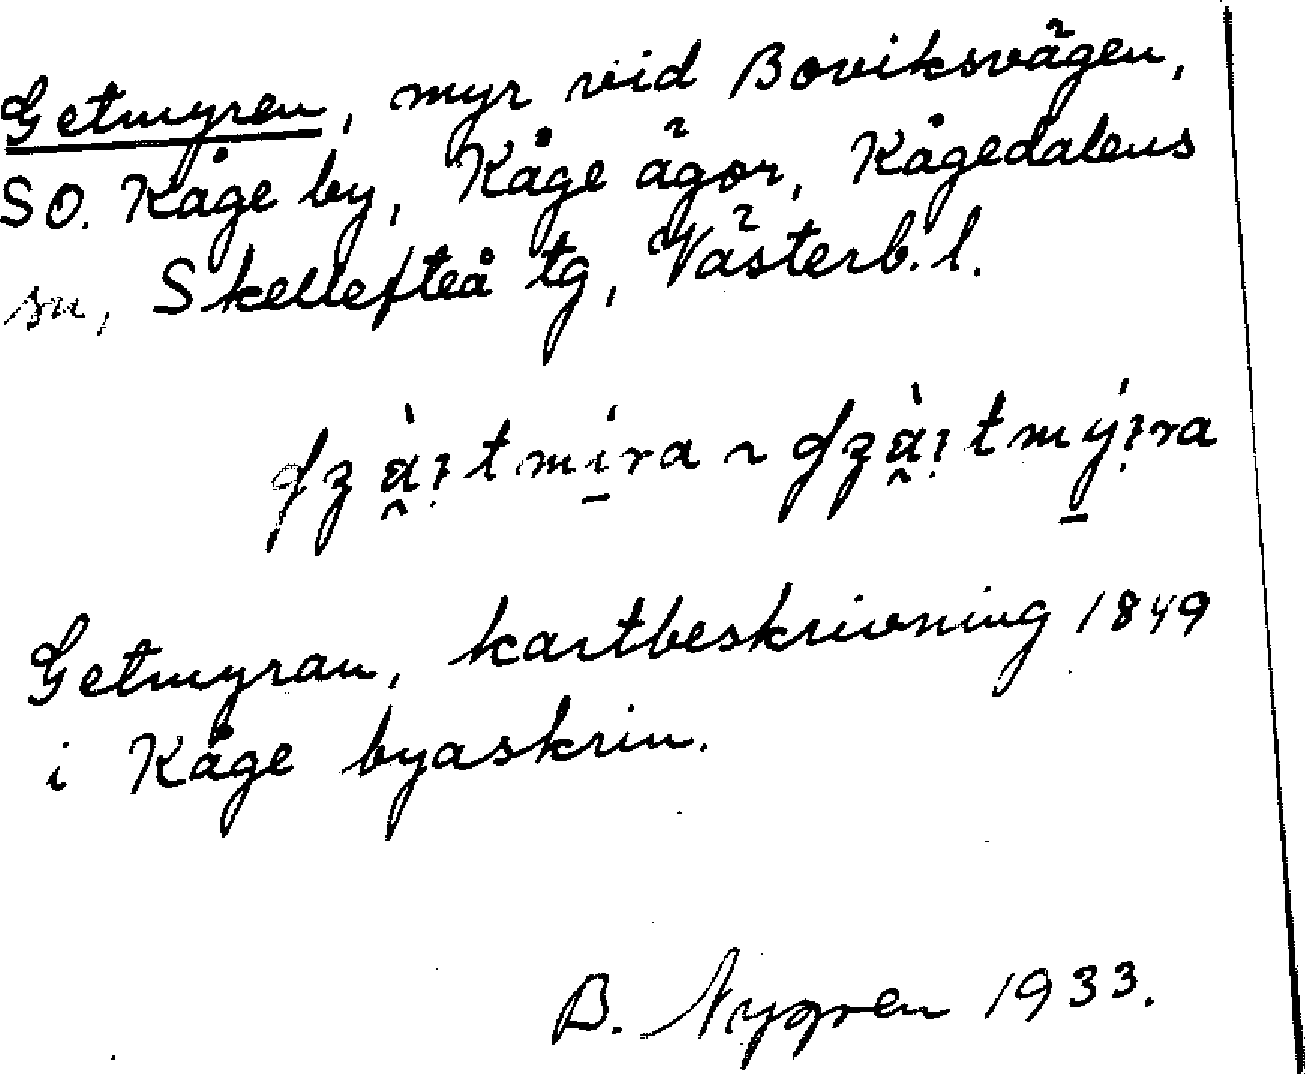 Getmyren, myr vid Boviksvägen,
SO. Kåge by, Kåge ägor, Kågedalens
sn, Skellefteå tg, Västerb. l.
Getmyran, kartbeskrivning 1849
i Kåge byaskrin.
B. Nygren 1933.